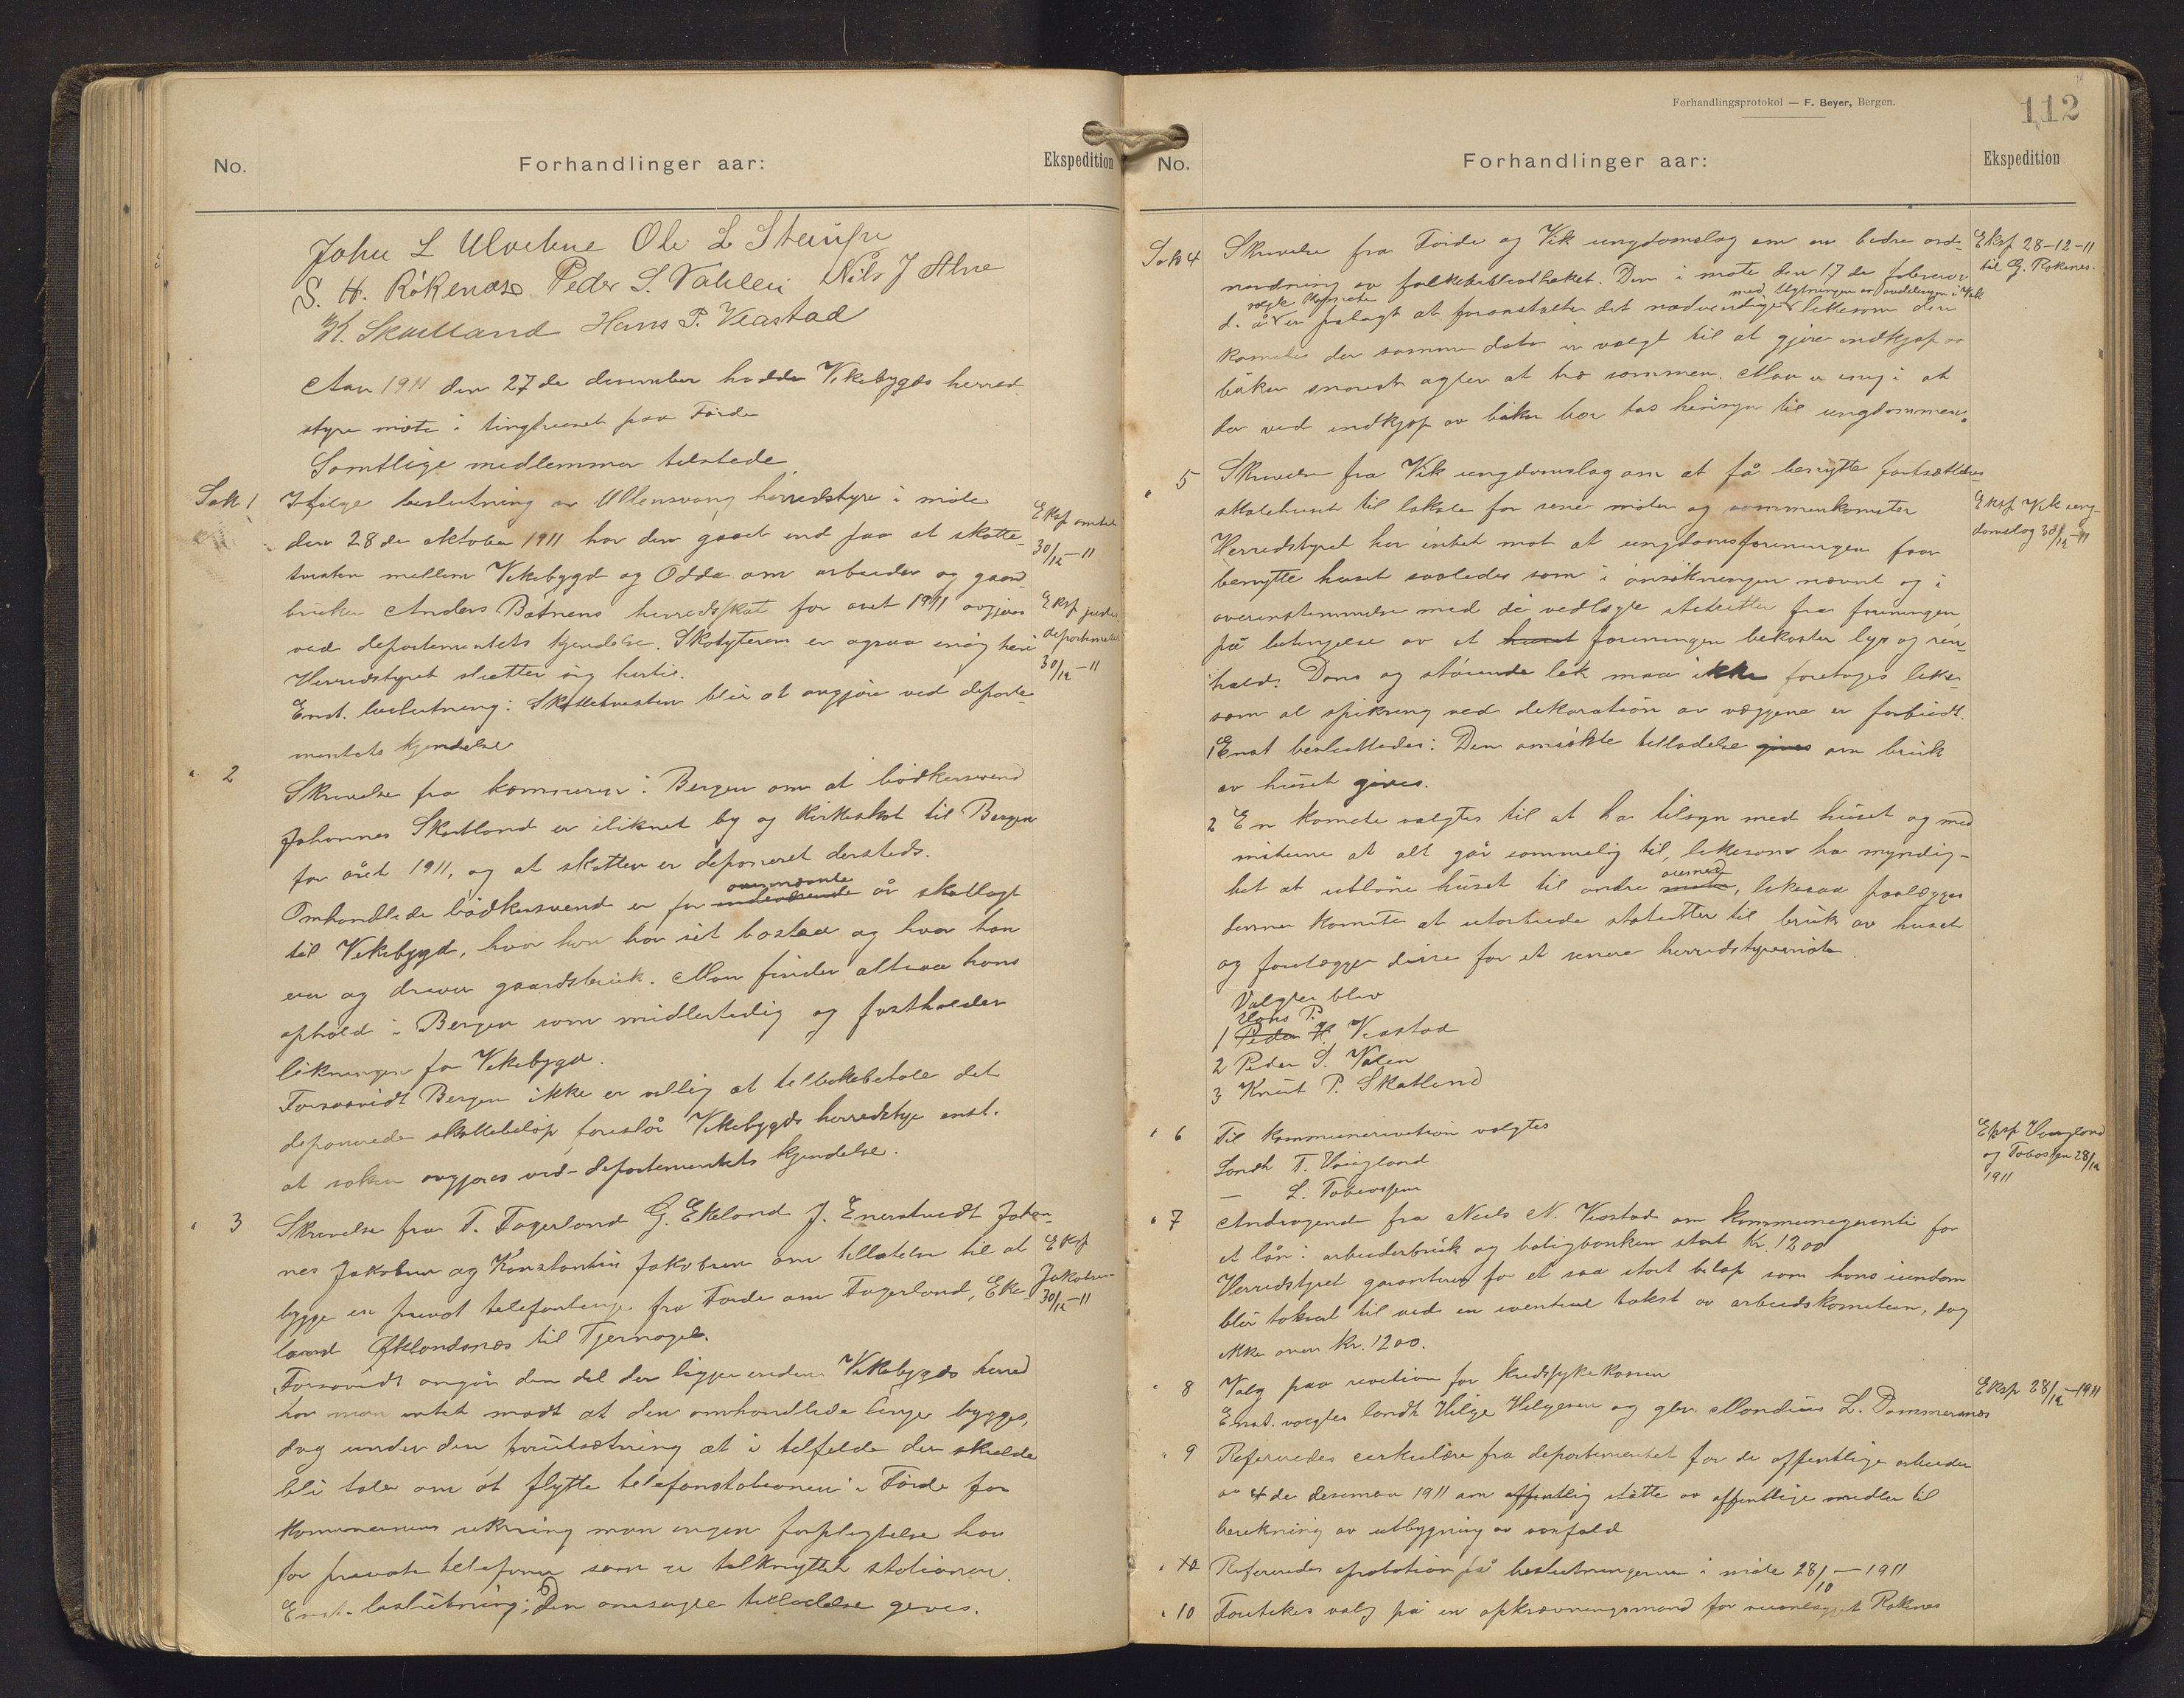 No.
Forhandlinger aar:
Ekspedition
John L Ulvebne Ole L Steinfre
S. H. Rökenæs Peder S. Vahlen Nils J Alne
K. Skatland Hans P. Veastad
Aar 1911 den 27de desember hadde Vikebygds herred
styre möte i tinghuset paa Förde
Samtlige medlemmer tilstede.
Sak 1
Ifölge beslutning av Ullensvang herredstyre i möte
den 28de oktober 1911 har den gaaet ind paa at skatte-
tvisten mellem Vikebygd og Odda om arbeider og gaard
bruker Anders Båtnens herredsskat for aaret 1911 avgjöres
ved departementets kjendelse. Skatyteren er ogsaa enig heri
Herredstyret slutter sig hertil.
Enst. beslutning: Skattetvisten blir at avgjöre ved departe-
mentets kjendelse
Eksp amtet
30/12-11
Eksp justis
departementet
30/12-11
" 2
Skrivelse fra kæmneren i Bergen om at bödkersvend
Johannes Skartland er iliknet by og kirkeskat til Bergen
for året 1911, og at skatten er deponeret dersteds.
Omhandlede bödkersvend er for indeværende ovennævnte år skatlagt
til Vikebygd, hvor han har sit bosted og hvor han
eier og driver gaardsbruk. Man finder altsaa hans
ophold i Bergen som midlertidig og fastholder
likningen fra Vikebygd.
Forsaavidt Bergen ikke er villig at tilbakebetale det
deponerede skattebelöp foreslår Vikebygds herredstyre enst.
at saken avgjöres ved departementets kjendelse.
" 3
Skrivelse fra T. Fagerland G. Ekeland J. Enerstvedt Johan-
nes Jakobsen og Konstantin Jakobsen om tillatelse til at
bygge en privat telefonlinje fra Förde om Fagerland, Eke-
land Öklandsnæs til Tjernagel.
Forsaavidt angår den del der ligger inden Vikebygds herred
har man intet imodt at den omhandlede linje bygges,
dog under den forutsætning at i tilfelde der skulde
bli tale om at flytte telefonstationen i Förde for
kommunens rekning man ingen forpligtelse har
for private telefoner som er tilknyttet stationen.
Enst. beslutning: Den omsögte tilladelse gives.
Eksp
Jakobsen
30/12-11
Forhandlingsprotokol — F. Beyer, Bergen.
112
No.
Forhandlinger aar:
Ekspedition
Sak 4
Skrivelse fra Förde og Vik ungdomslag om en bedre ord-
nordning av folkebiblioteket. Den i möte den 17de februar
d. å valgte komite er pålagt at foranstalte det nödvendige med flytningen av avdelingen i Vik likesom den
komite der samme dato er valgt til at gjöre indkjöp av
böker snarest agter at træ sammen. Man er enig i at
der ved indkjöp av böker bör tas hensyn til ungdommen.
Eksp 28-12-11
til G. Rökenes.
" 5
Skrivelse fra Vik ungdomslag om at få benytte fortsættelses
skolehuset til lokale for sine möter og sammenkomster
Herredstyret har intet mot at ungdomsforeningen faar
benytte huset saaledes som i ansökningen nævnt og i
overenstemmelse med de vedlagte statutter fra foreningen,
på betingelse av at huset foreningen bekoster lys og ren-
hold. Dans og störende lek maa ikke foretages like-
som al spikring ved dekoration av væggene er forbudt.
1 Enst besluttedes: Den ansökte tilladelse gives om bruk
av huset gives.
2 En komite valgtes til at ha tilsyn med huset og med
möterne at alt går sömmelig til, likesom ha myndig-
het at utlåne huset til andre möter ærend, likesaa paalægges
denne komite at utarbeide statutter til bruk av huset
og forelægge disse for et senere herredstyremöte.
Valgte blev
1 Peder H. Hans P. Veastad
2 Peder S. Valen
3 Knut P. Skatland
Eksp Vik ung-
domslag 30/12-11
" 6
Til kommunerevision valgtes
Landh T. Vaugland
— L. Tobiassen
Eksp Vaugland
og Tobiassen 28/12
1911
" 7
Andragende fra Neils N. Veastad om kommunegaranti for
et lån i arbeiderbruk og boligbanken stort Kr. 1200
Herredstyret garanterer for et saa stort belöp som hans eiendom
blir taksert til ved en eventuel takst av arbeidskomiteen, dog
ikke over kr. 1200.
" 8
Valg paa revition for kredssykekassen
Enst. valgtes landh Helge Helgesen og gbr. Mandius L. Dommersnes
Eksp 28/12-1911
" 9
Refereredes cirkulære fra departementet for de offentlige arbeider
av 4de desember 1911 om offentlig stötte av offentlige midler til
berekning av utbygning av vasfald
" 10
Refereredes aprobation på beslutningerne i möte 28/10-1911
" 10
Foretokes valg på en opkrævningsmand for Rökenes